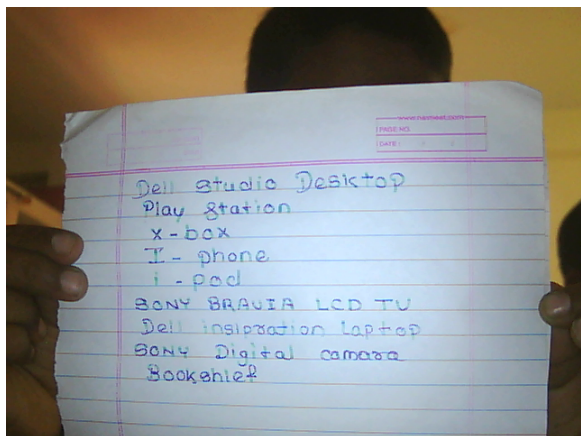 www.nazmeel.com
PAGE NO.
DATE :
Dell Studio Desktop
Play Station
x-box
I-phone
i-pod
SONY BRAVIA LCD TV
Dell insipration Laptop
SONY Digital camara
Bookshief